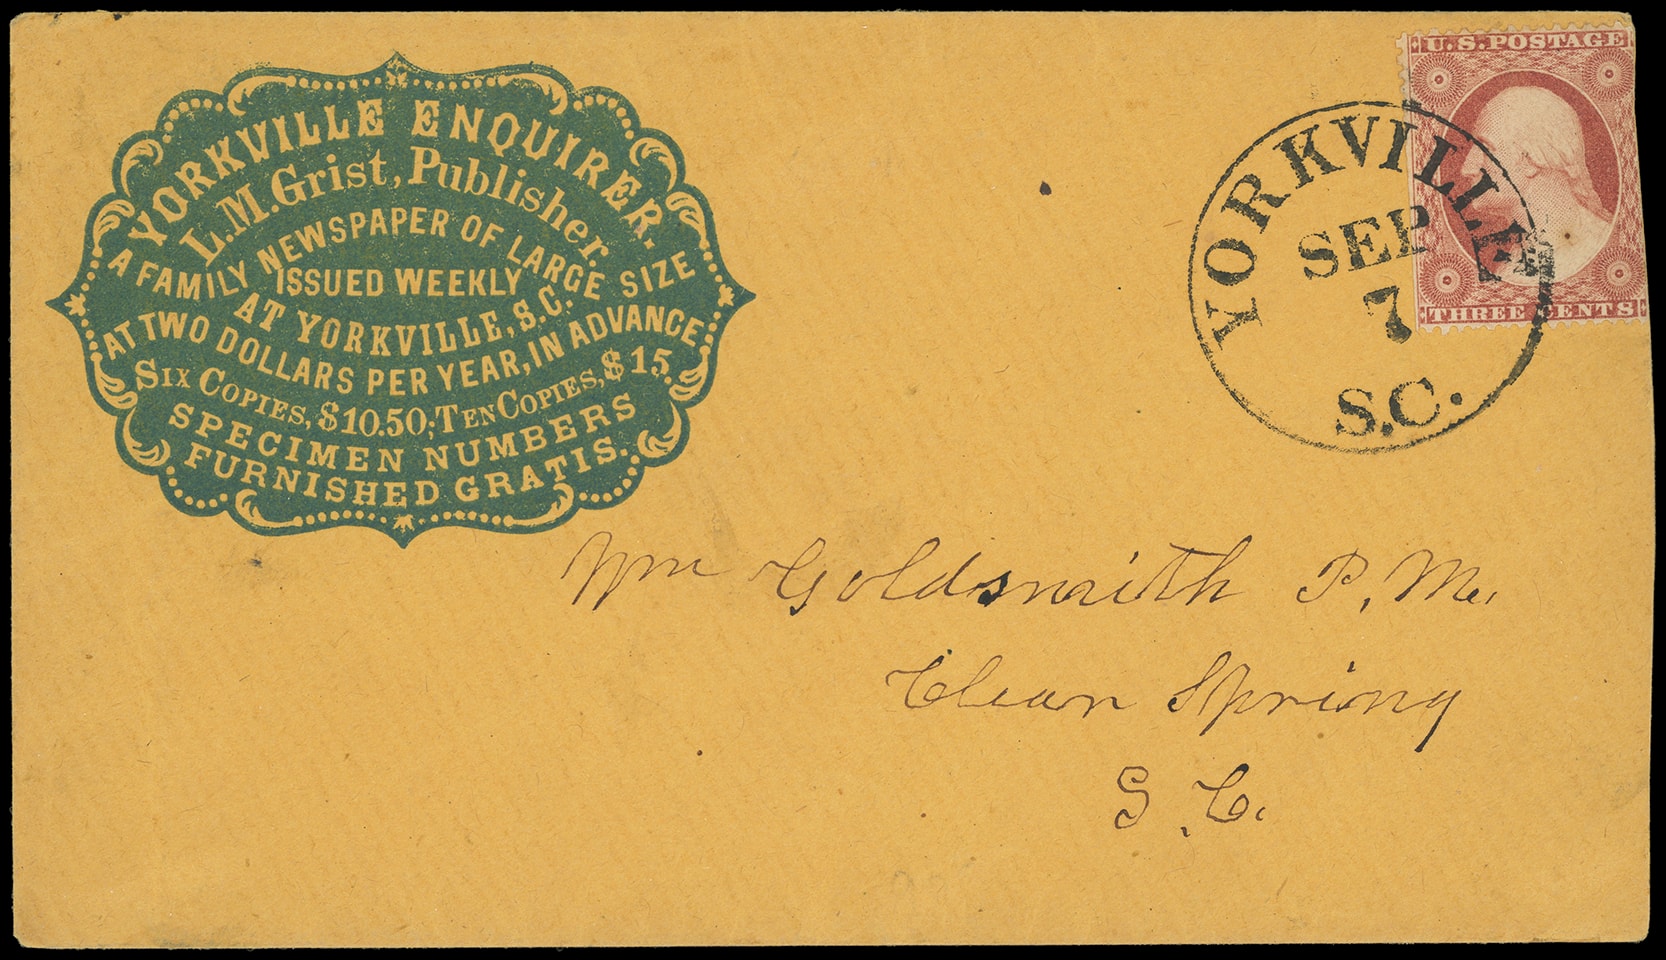 YORKVILLE ENQUIRER.
L. M. Grist, Publisher.
A FAMILY NEWSPAPER OF LARGE SIZE
ISSUED WEEKLY
AT YORKVILLE, S.C.
AT TWO DOLLARS PER YEAR, IN ADVANCE,
SIX COPIES, $10.50; TEN COPIES, $15.
SPECIMEN NUMBERS
FURNISHED GRATIS.
U.S. POSTAGE
THREE CENTS
YORKVILLE
SEP
7
S.C.
Wm Goldsmith P. M.,
Clear Spring
S. C.